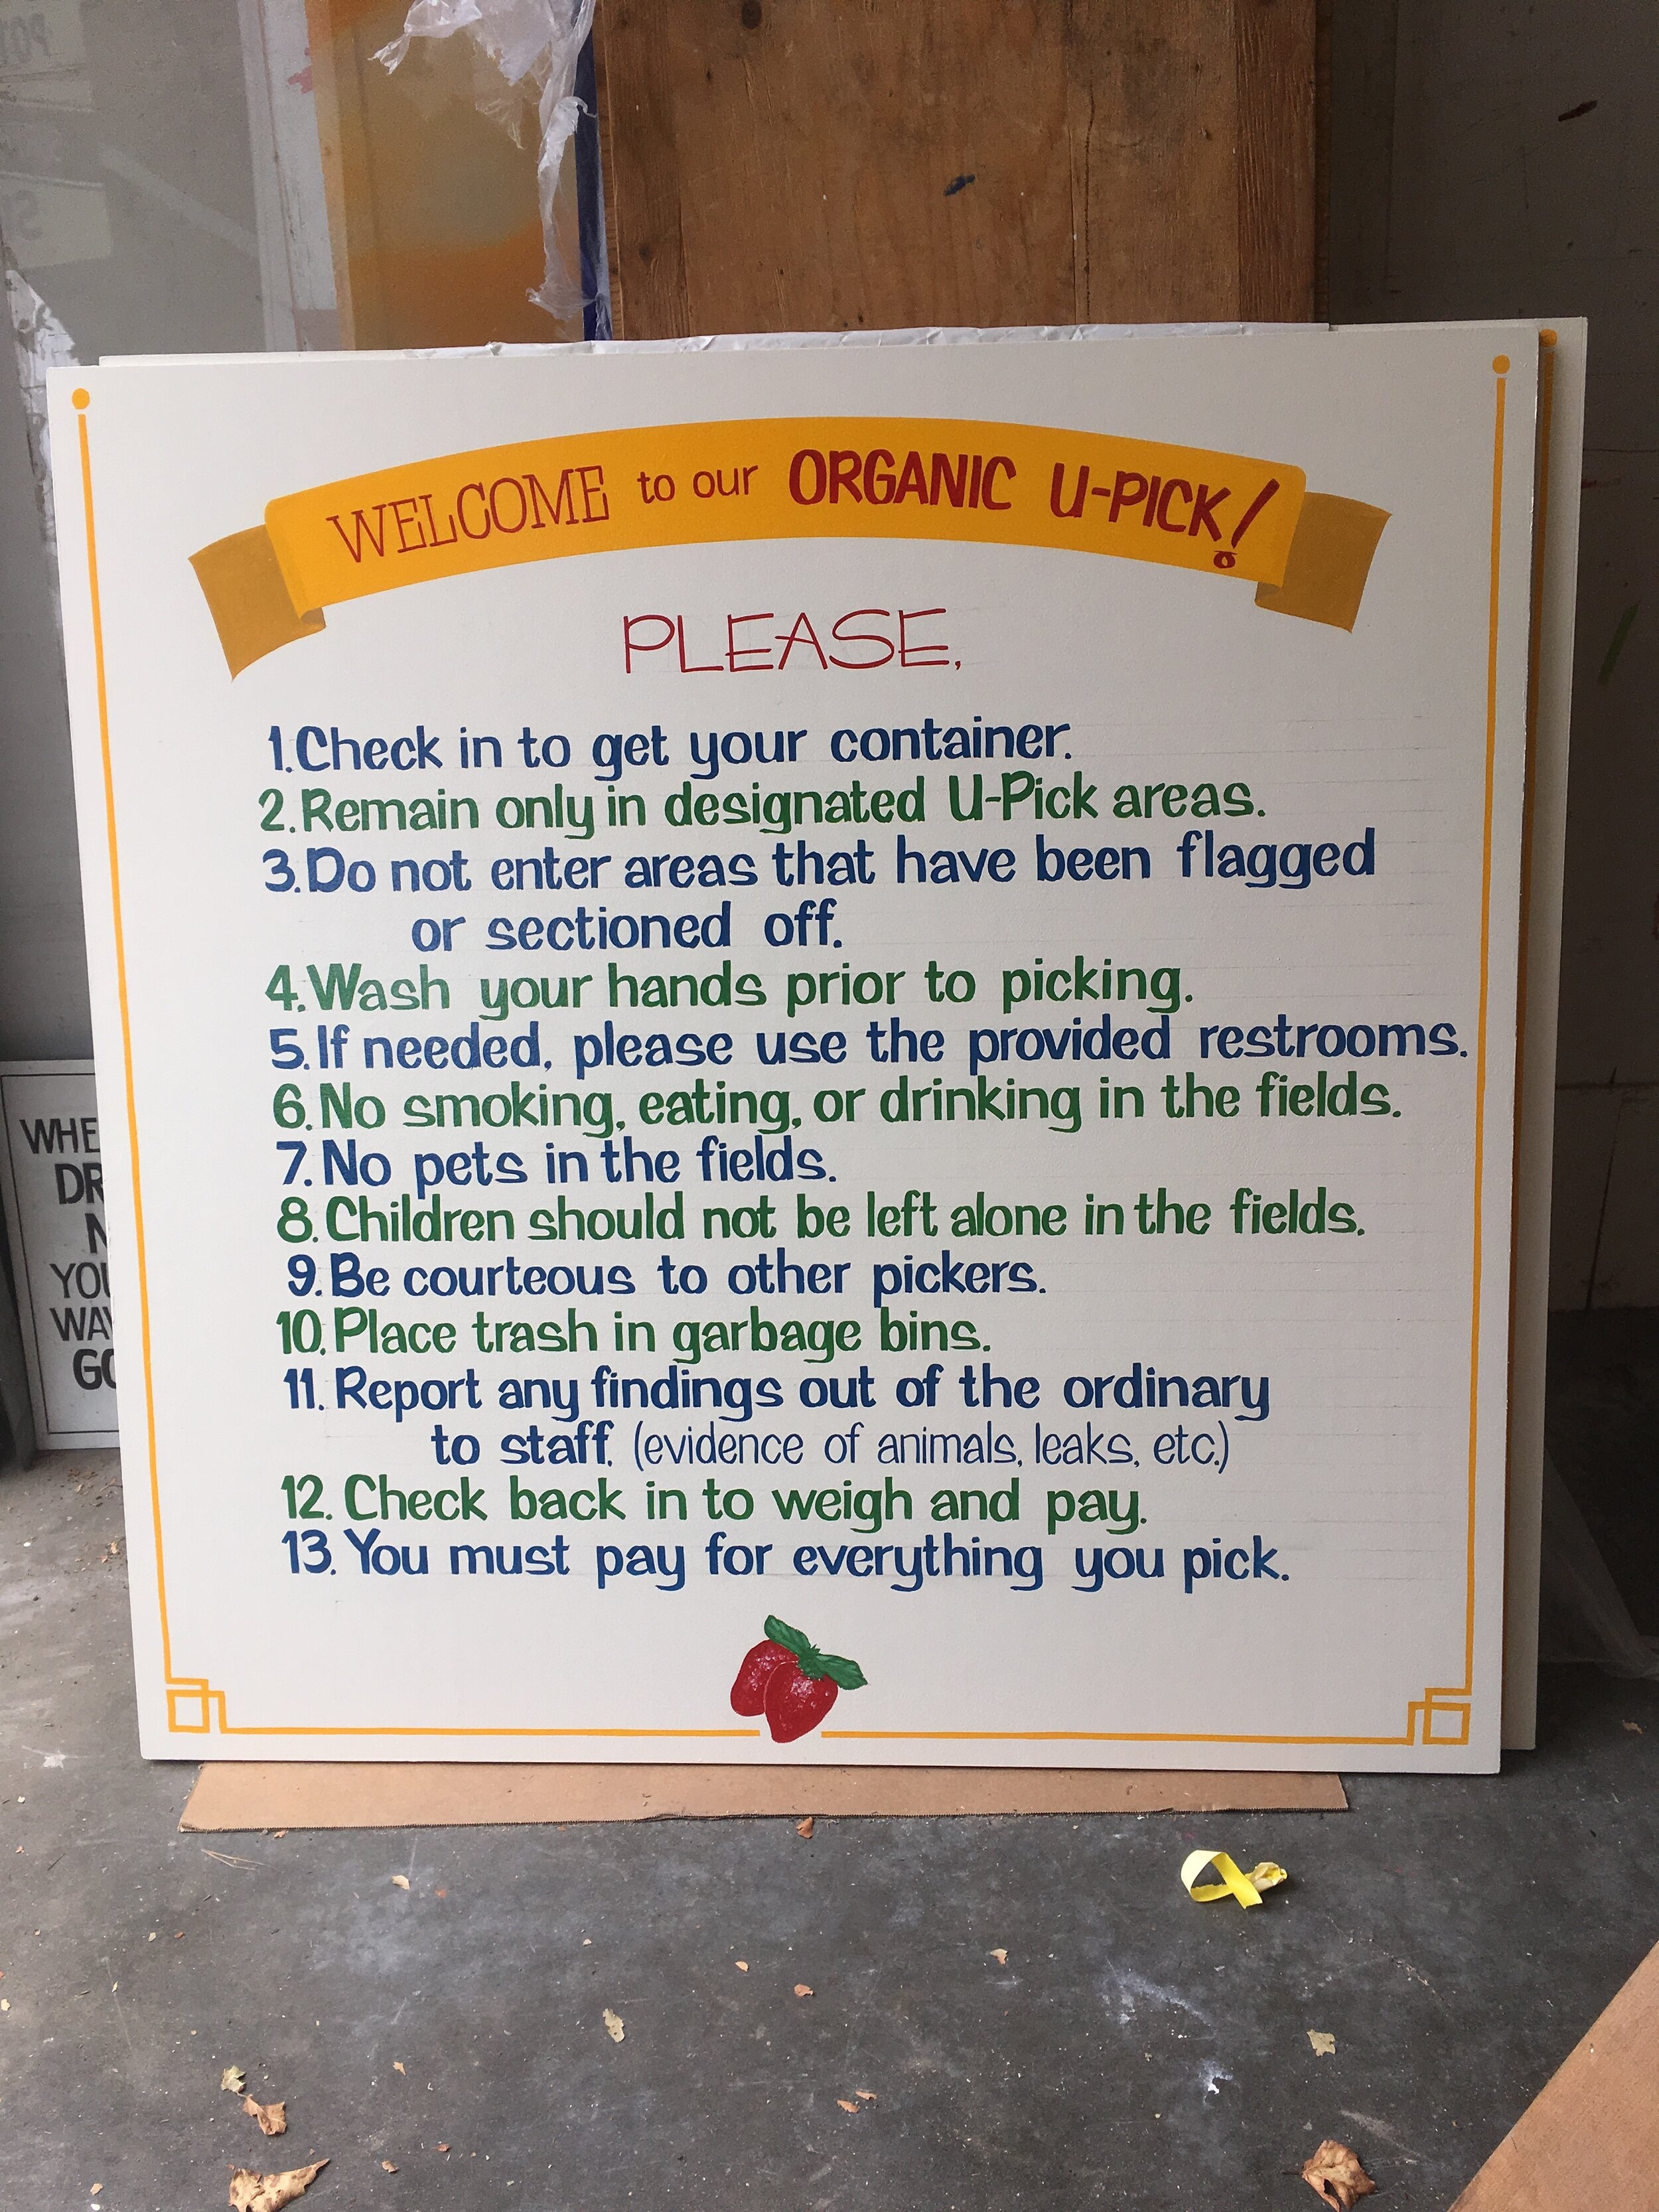 WELCOME to our ORGANIC U-PICK!
PLEASE,
1. Check in to get your container.
2. Remain only in designated U-Pick areas.
3. Do not enter areas that have been flagged
or sectioned off.
4. Wash your hands prior to picking.
5. If needed, please use the provided restrooms.
6. No smoking, eating, or drinking in the fields.
7. No pets in the fields.
8. Children should not be left alone in the fields.
9. Be courteous to other pickers.
10. Place trash in garbage bins.
11. Report any findings out of the ordinary
to staff. (evidence of animals, leaks, etc.)
12. Check back in to weigh and pay.
13. You must pay for everything you pick.